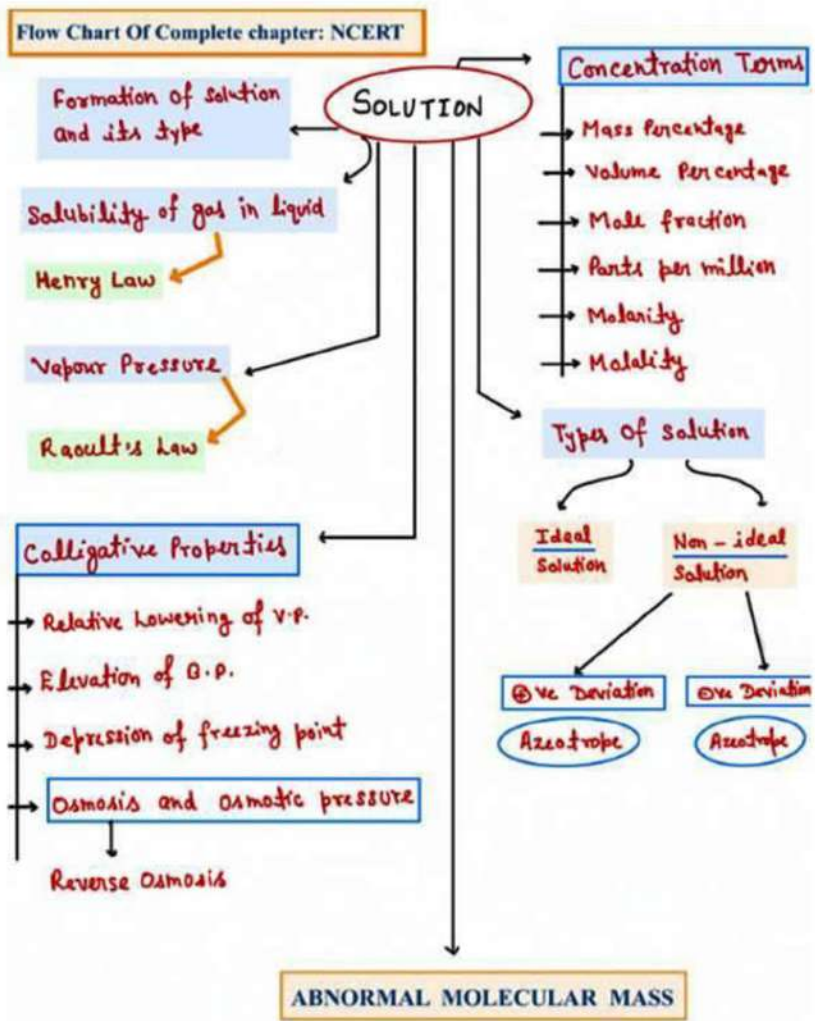 Flow Chart Of Complete chapter: NCERT
SOLUTION
Formation of solution
and its type
Solubility of gas in liquid
Henry Law
Vapour Pressure
Raoult's Law
Colligative Properties
Relative Lowering of V.P.
Elevation of B.P.
Depression of freezing point
Osmosis and osmotic pressure
Reverse Osmosis
Concentration Terms
Mass Percentage
Volume Percentage
Mole fraction
Parts per million
Molarity
Molality
Types of solution
Ideal
Solution
Non-ideal
Solution
⊕ve Deviation
Azeotrope
⊖ve Deviation
Azeotrope
ABNORMAL MOLECULAR MASS